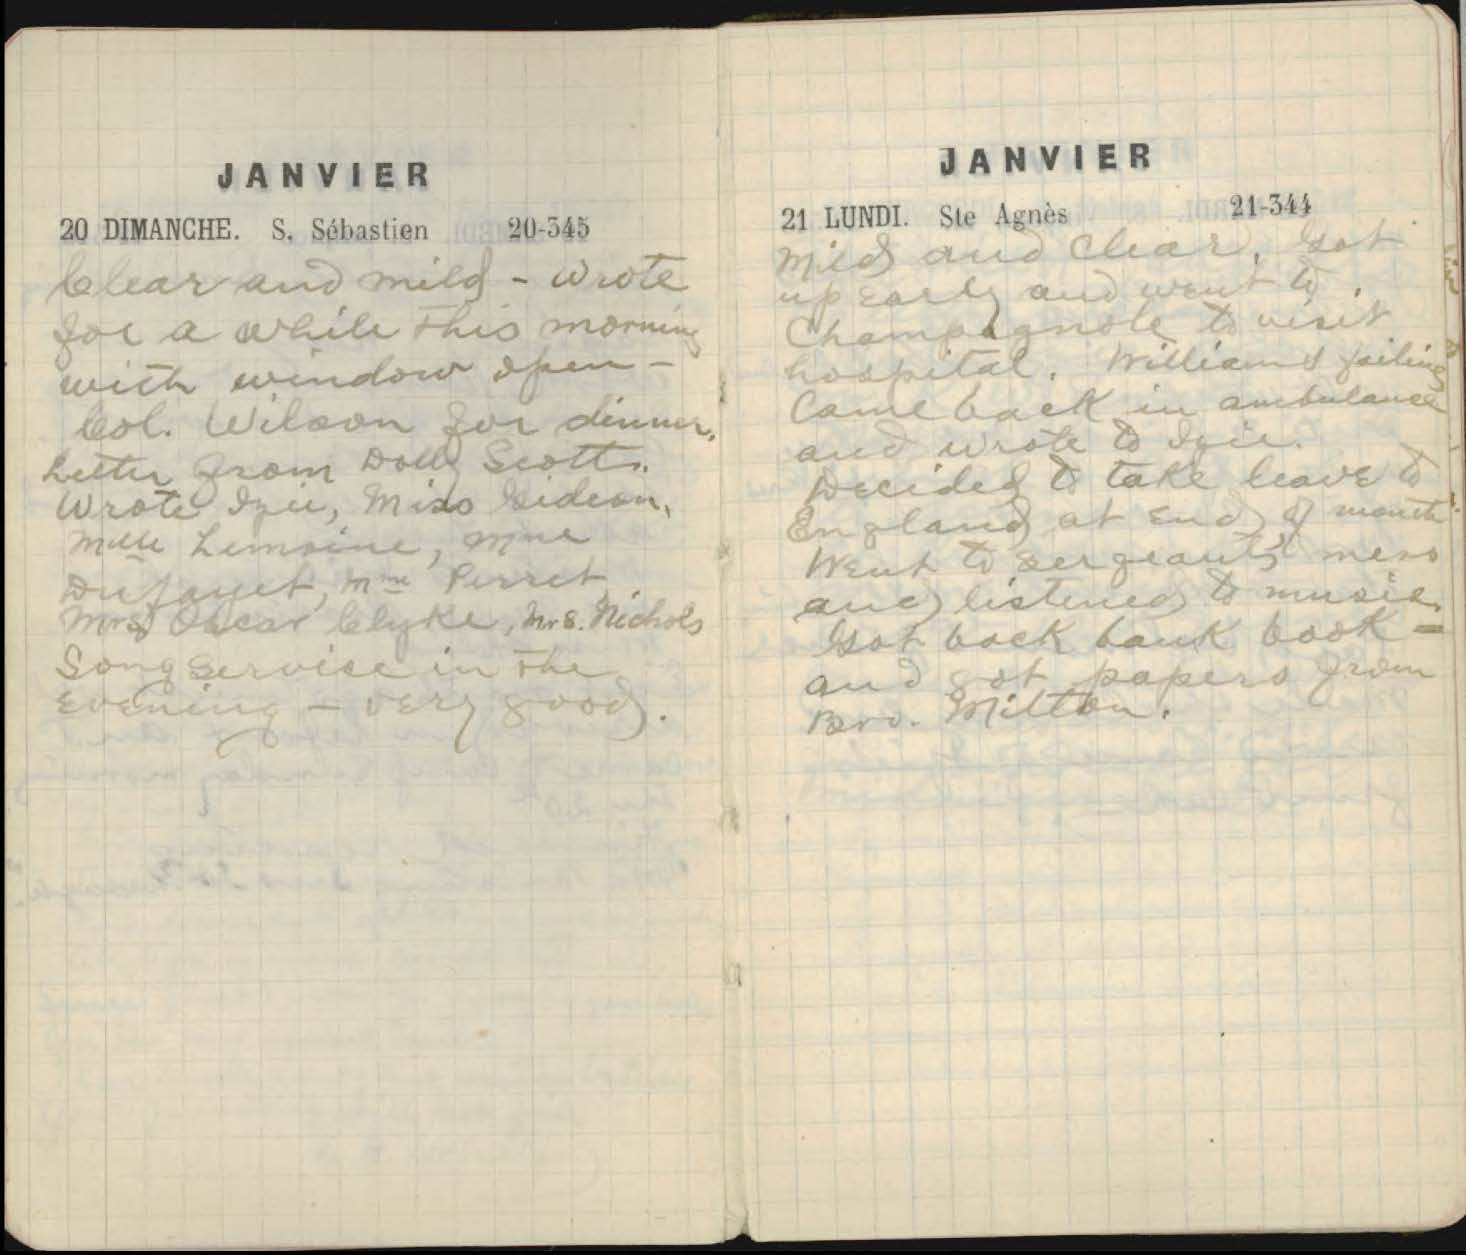 JANVIER
20 DIMANCHE. S. Sébastien 20-345
Clear and mild - wrote
for a while this morning
with window open -
Col. Wilson for dinner.
Letter from Dolly Scott.
Wrote Izie, Miss Gideon,
Mlle Lemoine, Mme
Dufayet, Mme Perret
Mrs Oscar Clyke, Mrs. Nichols
Song service in the
evening - very good.
JANVIER
21 LUNDI. Ste Agnès 21-344
Mild and clear, Got
up early and went to
Champagnole to visit
hospital. Williams failing
Came back in ambulance
and wrote to Izie.
Decided to take leave to
England at end of month
Went to sergeants' mess
and listened to music.
Got back bank book -
and got papers from
Bro. Milton.